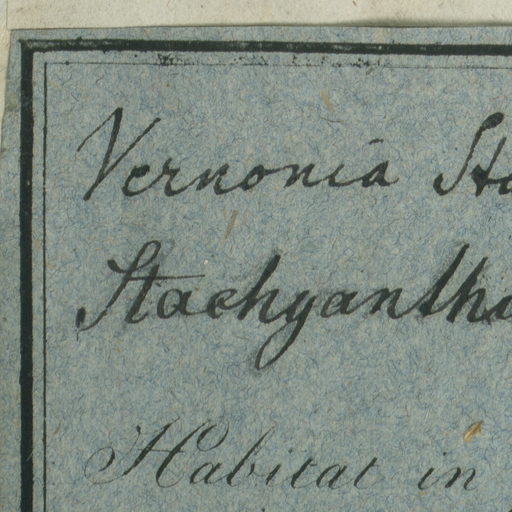 Vernonia Sta
Stachyantha
Habitat in